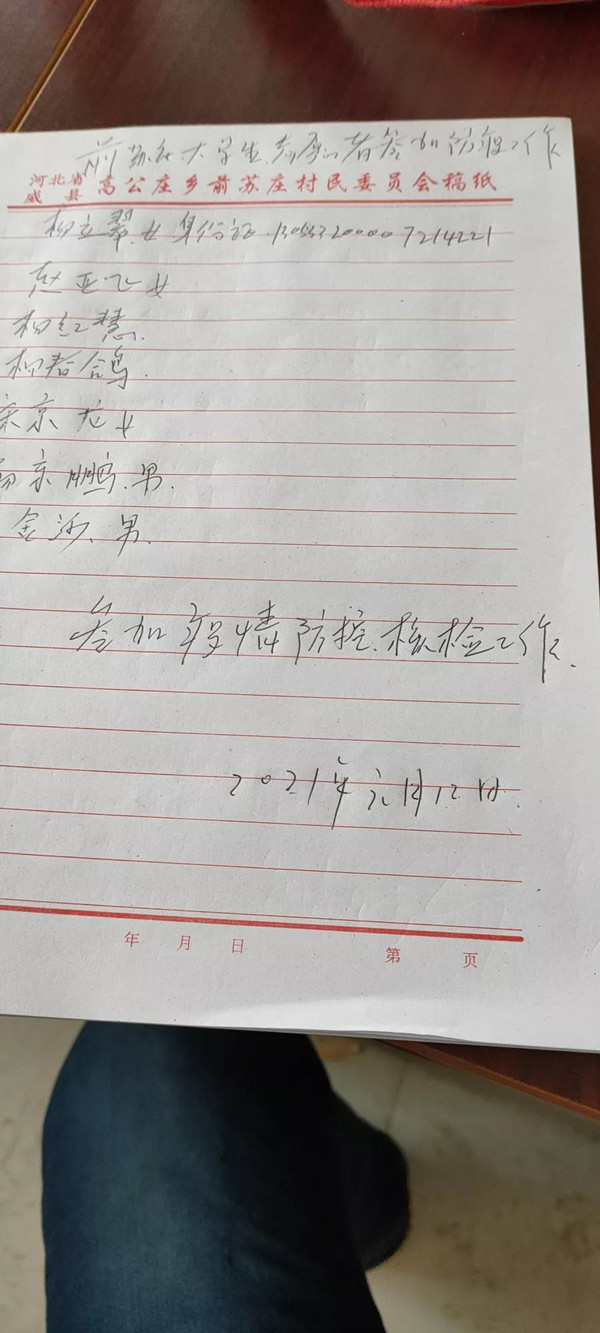 前苏庄大学生志愿者参加防疫工作
河北省
威 县 高公庄乡前苏庄村民委员会稿纸
柳立翠.女 身份证.
赵亚飞女
柳红慧.
柳春鸽.
京龙女
京鹏.男.
金沙、男.
参加疫情防控.核检工作.
2021年元月12日.
年 月 日 第 页